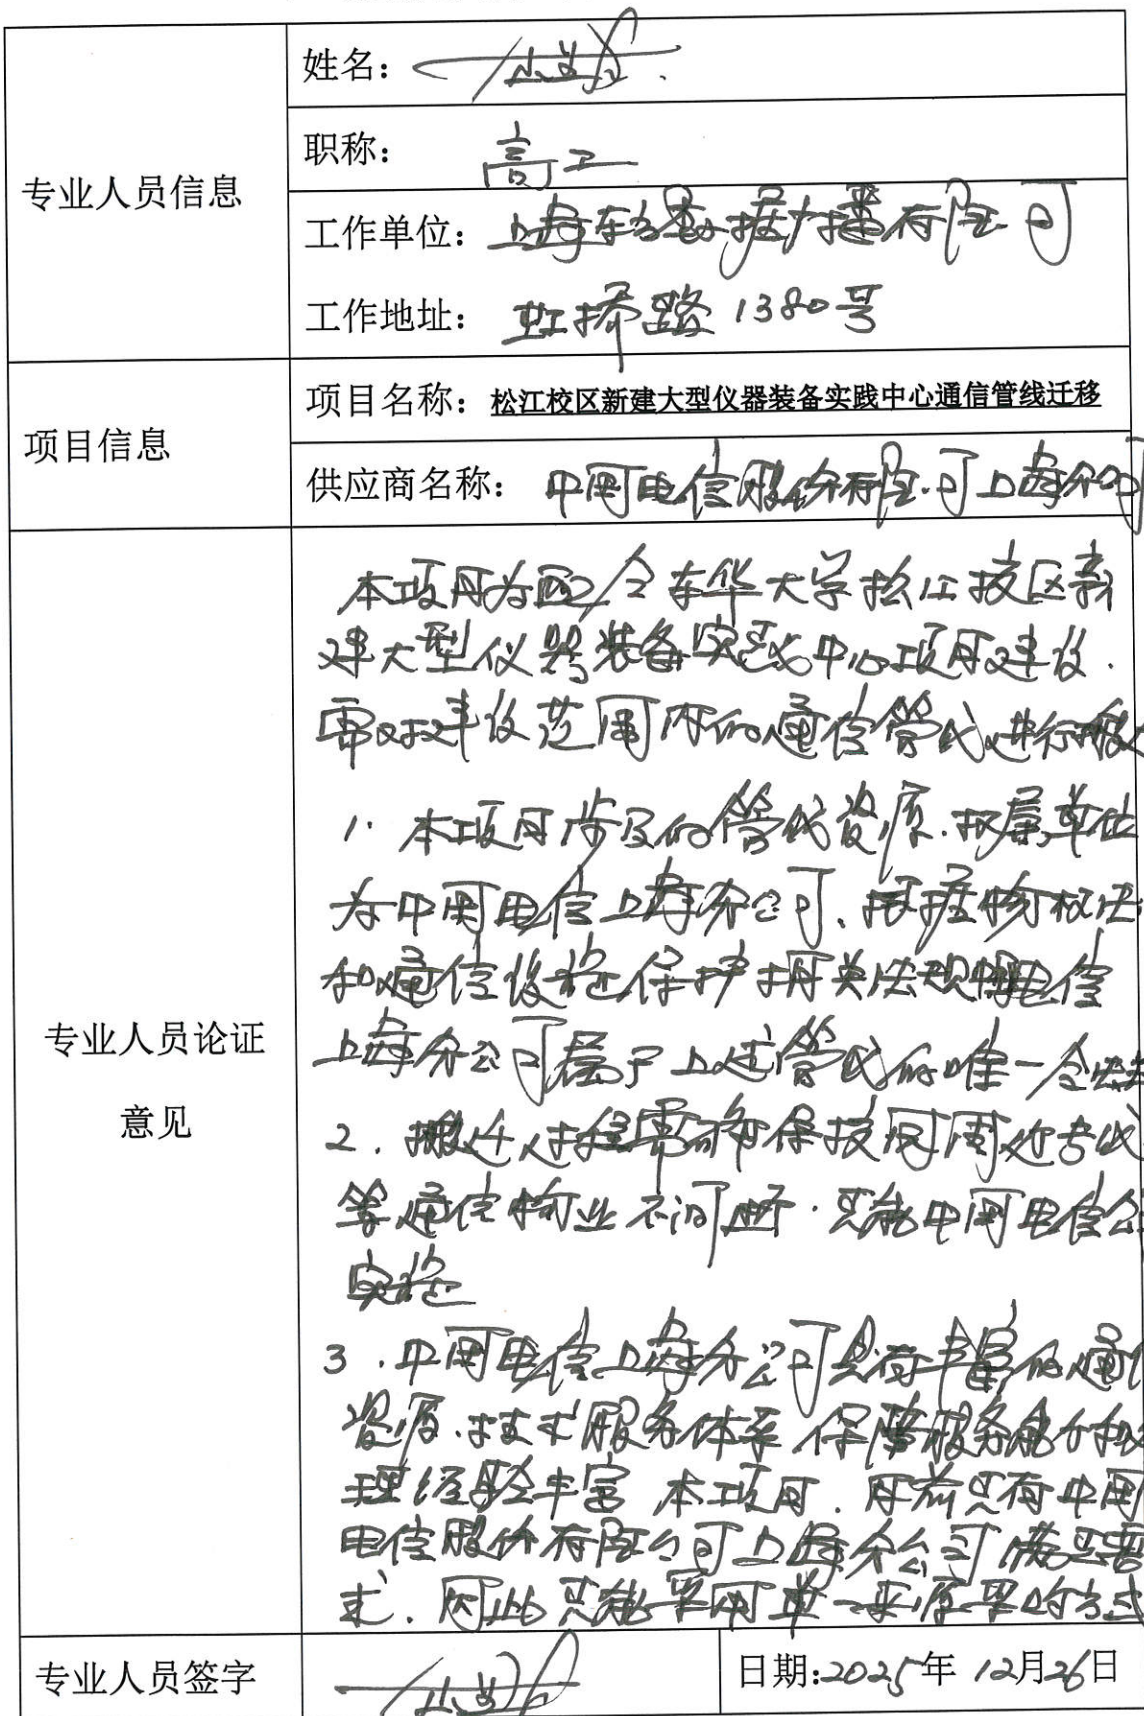 姓名：
职称： 高工
专业人员信息
工作单位： 上海 数据 有限公司
工作地址： 虹桥路 1380号
项目信息
项目名称：松江校区新建大型仪器装备实践中心通信管线迁移
供应商名称： 中国电信股份有限公司上海分公司
本项目为配合东华大学松江校区新
建大型仪器装备实践中心项目建设.
需对建设范围内的通信管线进行搬
1. 本项目涉及的管线资源.权属单位
为中国电信上海分公司、根据物权法
和通信设施保护相关法规 电信
专业人员论证
意见
上海分公司属于上述管线的唯一合法
2. 搬迁过程需确保校园周边专线
等通信物业不间断.只能中国电信公
实施
3.中国电信上海分公司具有丰富的通信
资源.技术服务体系 保障服务能力和
理经验丰富 本项目.目前只有中国
电信股份有限公司上海分公司满足要
求.因此只能采用单一来源采购方式
专业人员签字
日期:2025年12月26日